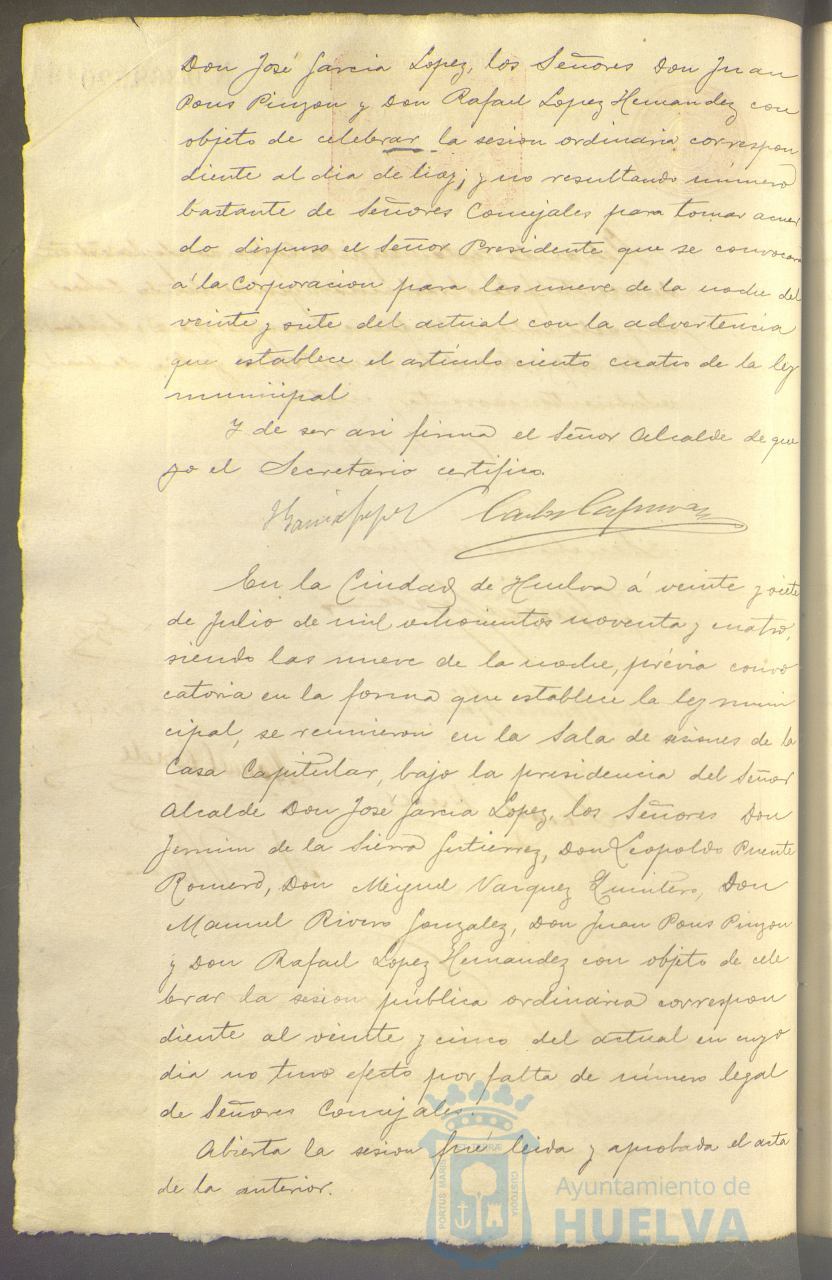 Don José Garcia Lopez, los Señores Don Juan
Pons Pinzon y Don Rafael Lopez Hernandez con
objeto de celebrar la sesion ordinaria correspon
diente al dia de hoy; y no resultando número
bastante de Señores Concejales para tomar acuer
do dispuso el Señor Presidente que se convocara
á la Corporacion para las nueve de la noche del
veinte y siete del actual con la advertencia
que establece el artículo ciento cuatro de la ley
municipal
Y de ser asi firma el Señor Alcalde de que
yo el Secretario certifico.
En la Ciudad de Huelva á veinte y siete
de Julio de mil ochocientos noventa y cuatro,
siendo las nueve de la noche, prévia convo
catoria en la forma que establece la ley muni
cipal, se reunieron en la Sala de sesiones de la
Casa Capitular, bajo la presidencia del Señor
Alcalde Don José Garcia Lopez, los Señores Don
de la Sierra Gutierrez, Don Leopoldo Puente
Romero, Don Miguel Vazquez Quintero, Don
Manuel Rivero Gonzalez, Don Juan Pons Pinzon
y Don Rafael Lopez Hernandez con objeto de cele
brar la sesion pública ordinaria correspon
diente al veinte y cinco del actual en cuyo
dia no tuvo efecto por falta de número legal
de Señores Concejales.
Abierta la sesion fué leida y aprobada el acta
de la anterior.
PORTUS MARIS
CUSTODIA
Ayuntamiento de
HUELVA